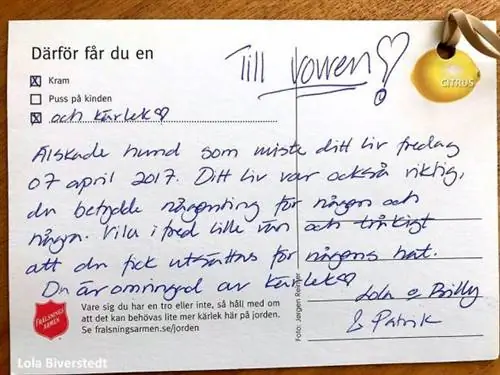 Därför får du en
Till vovven!
CITRUS
Kram
Puss på kinden
och kärlek
Älskade hund som miste ditt liv fredag
07 april 2017. Ditt liv var också viktig,
du betydde någonting för någon och
någon. Vila i fred lille vän och tråkigt
att du fick utsättas för någons hat.
Du är omringad av kärlek
Lola o Billy
& Patrik
FRÄLSNINGS
ARMÉN
Vare sig du har en tro eller inte, så håll med om
att det kan behövas lite mer kärlek här på jorden.
Se fralsningsarmen.se/jorden
Foto: Jørgen Reimer
Lola Biverstedt